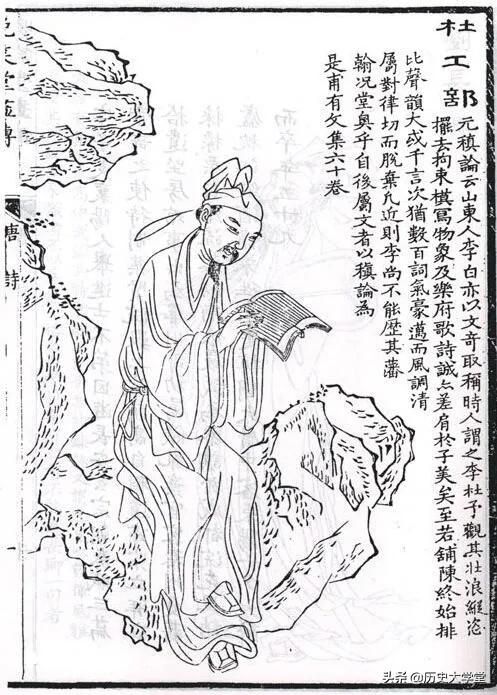 杜工部
元稹論云山東人李白亦以文奇取稱時人謂之李杜予觀其壯浪縱恣
擺去拘束模寫物象及樂府歌詩誠亦差肩於子美矣至若鋪陳終始排
比聲韻大成千言次猶數百詞氣豪邁而風調清
屬對律切而脫棄凡近則李尚不能歷其藩
翰况堂奧乎自後屬文者以稹論為
是甫有文集六十卷
唐詩
一
头条 @历史大学堂